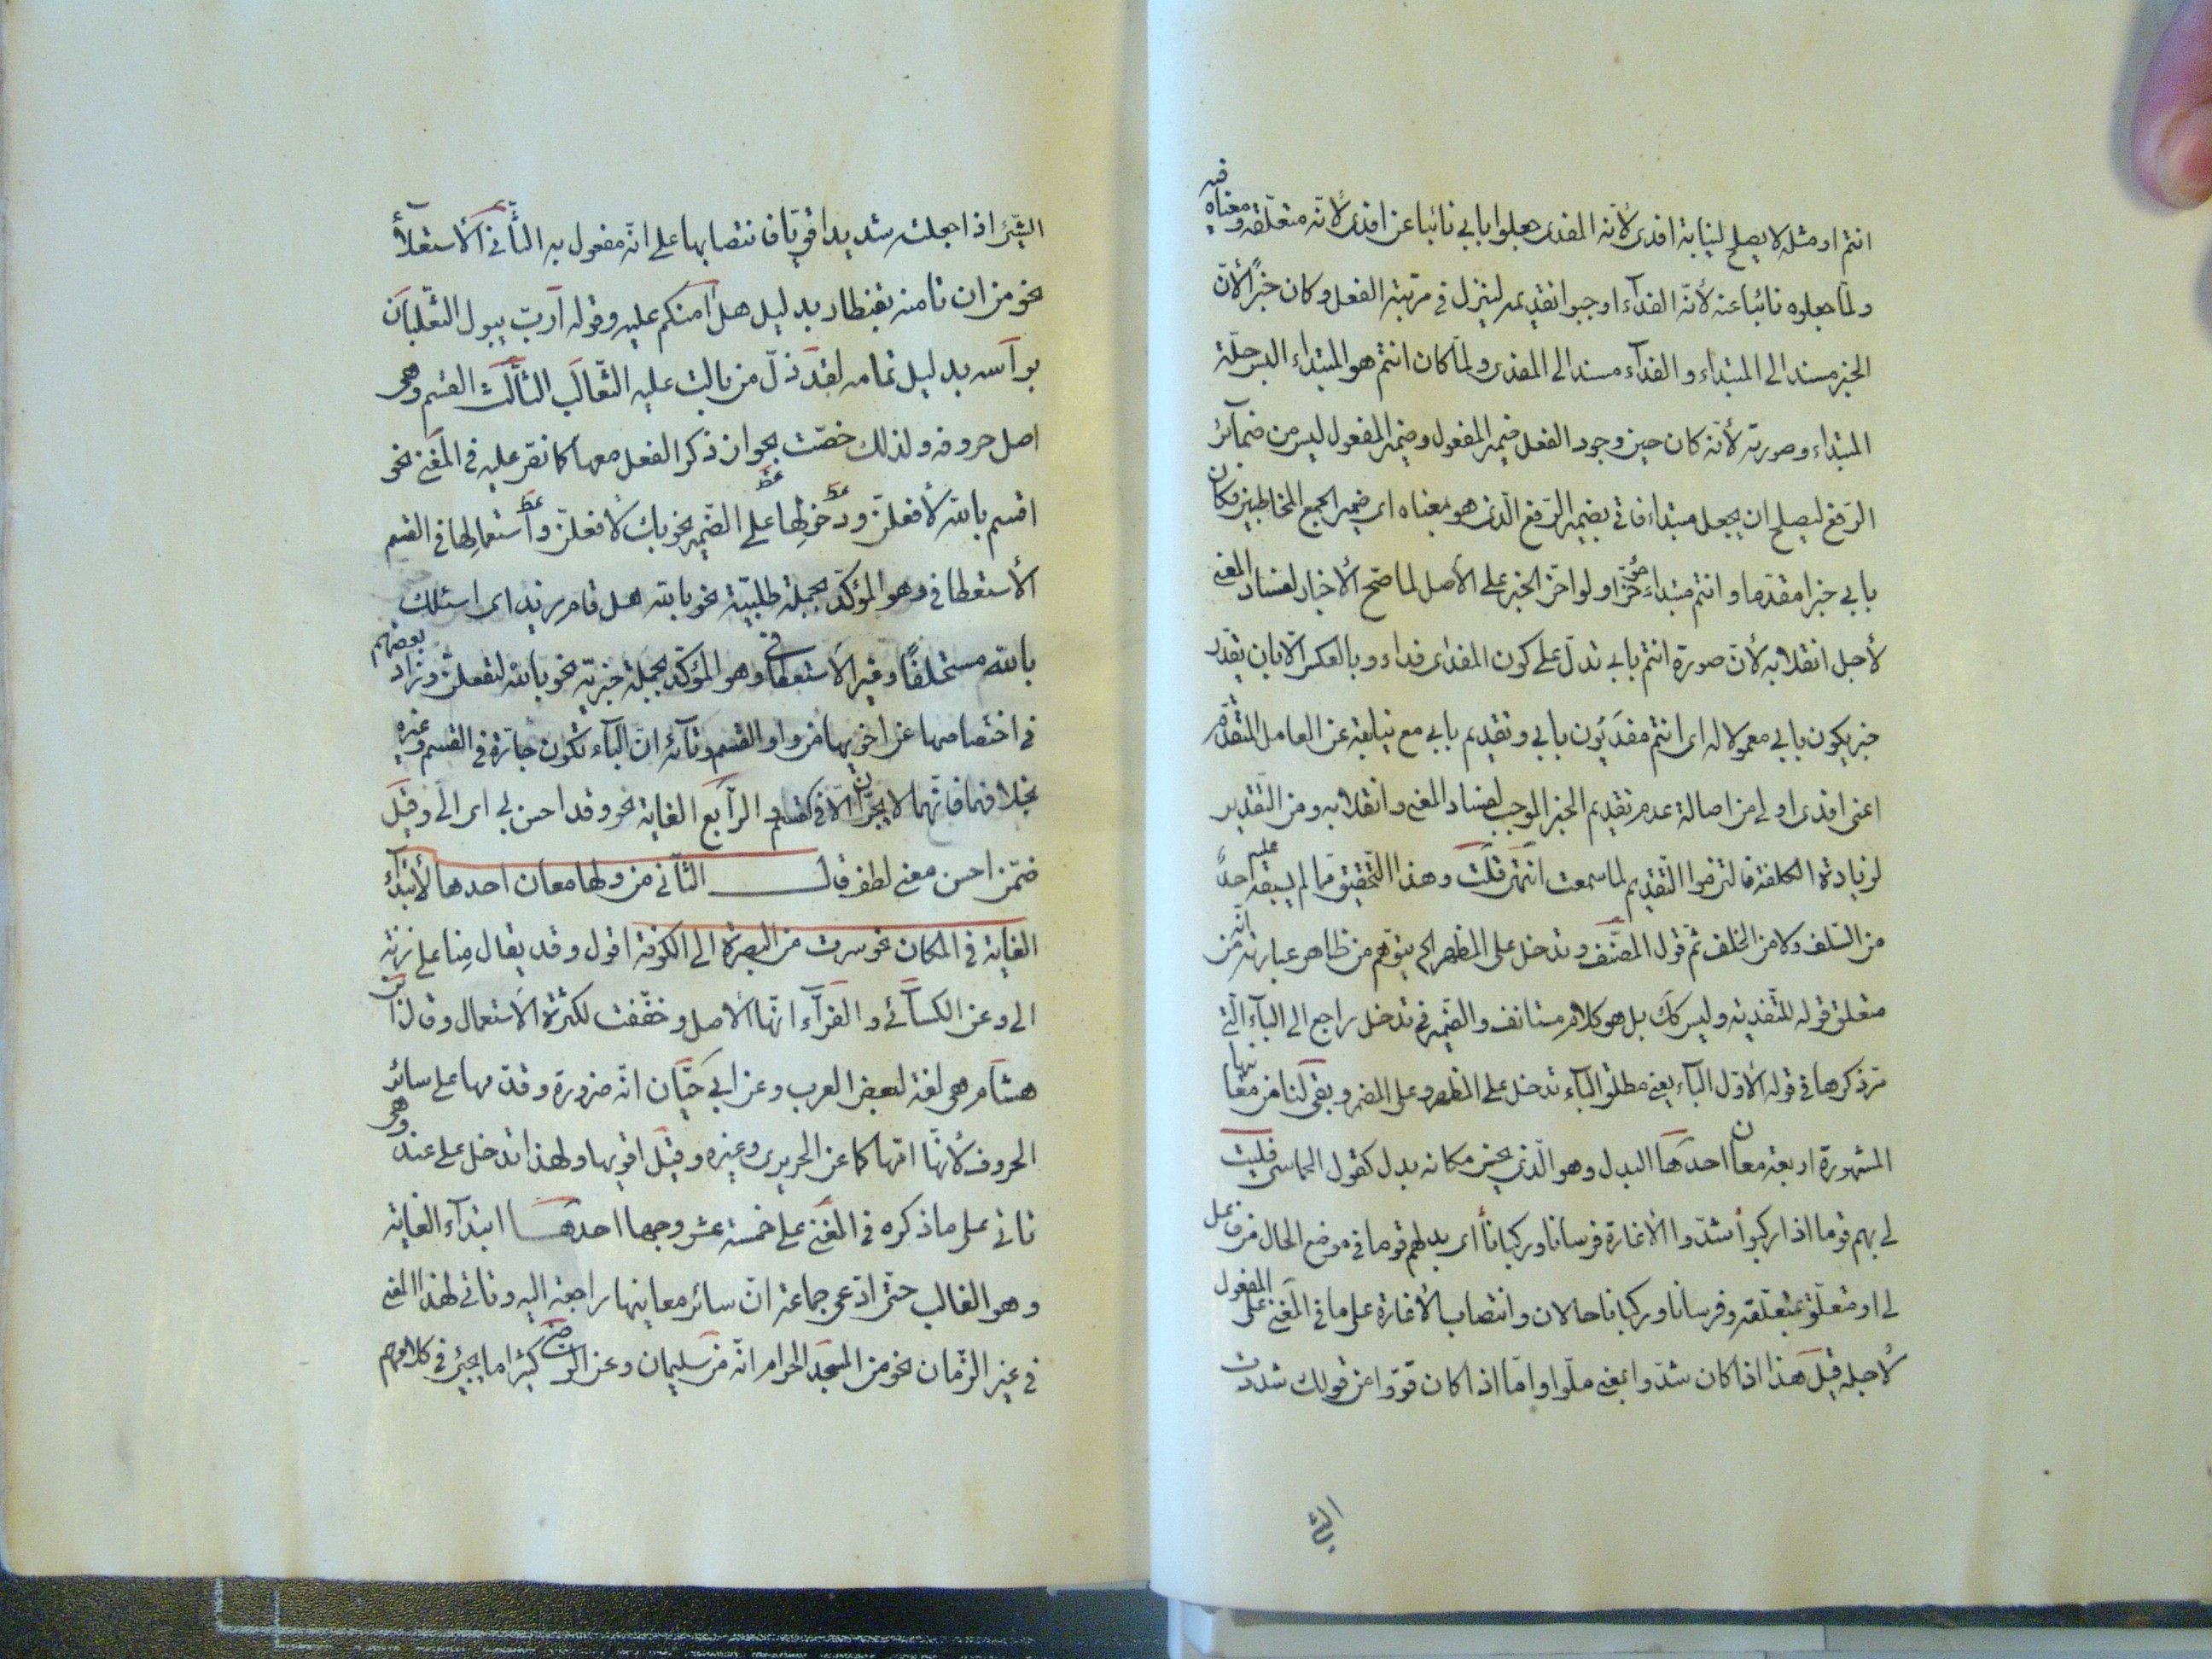 انتم او مثله لا يصلح لنيابة افدى لأنه المفدى جعلوا بابي نائبا عن افدى لأنه متعلقه ومعناه فيه
ولما جعلوه نائبا عنه لأنه الفدآء اوجبوا تقديمه لينزل في مرتبة الفعل وكان خبرًا لأنّ
الخبر مسند الى المبتداء والفدآء مسند الى المفدى ولما كان انتم هو المبتداء البس حلّة
المبتداء وصورته لأنه كان حين وجود الفعل ضمير المفعول وضمير المفعول ليس من ضمآئر
الرفع ليصلح ان يجعل مبتداء فاتى بضمير الرفع الّذى هو بمعناه اى ضمير الجمع المخاطبين فكان
بابي خبرا مقدّما وانتم مبتداء مؤخّرا ولو اخّر الخبر على الأصل لما صحّ الأخبار لفساد المعنى
لأجل انقلابه لأنّ صورة انتم بابي تدلّ على كون المفدى فداء وبالعكس الّا بان يقدّر
خبر يكون بابي معمولا له اى انتم مفديّون بابي وتقديم بابي مع نيابته عن العامل المتقدّم
اعنى افدى اولى من اصالة عدم تقديم الخبر الموجب لفساد المعنى وانقلابه ومن التقدير
لزيادة الكلفة فالتزموا التّقديم لما سمعت انتهى قلت وهذا التّحقيق ممّا لم يسبقه عليه احدٌ
من السّلف ولا من الخلف ثمّ قول المصنّف وتدخل على المظهر الخ يتوهّم من ظاهر عبارته انّه من
متعلق قوله للتّفدية وليس كك بل هو كلام مستانف والضّمير في تدخل راجع الى الباء الّتى
مرّ ذكرها في قوله الأوّل البآء يعنى مطلق البآء تدخل على المظهر وعلى المضمر وبقى لنا من معانيها
المشهورة اربعة معان احدها البدل وهو الّذى يحسن مكانه بدل كقول الحماسى فليت
لى بهم قوما اذا ركبوا شدّوا الأغارة فرسانا وركبانا اى بدلهم قوما في موضع الحال من فاعل
لى او متعلّق بمتعلّقه وفرسانا وركبانا حالان وانتصاب الأغارة على ما في المغنى على المفعول
لأجله قيل هذا اذا كان شدّوا بمعنى حملوا وامّا اذا كان قوّوا من قولك شددت
الشئ
الشّئ اذا جعلته شديدا قويّا فانتصابها على انّه مفعول به الثّانى الأستعلاء
نحو من ان تامنه بقنطار بدليل هل آمنكم عليه وقوله اربّ يبول الثّعلبان
براسه بدليل تمامه لقد ذلّ من بالت عليه الثّعالب الثّالث القسم وهى
اصل حروفه ولذلك خصّت بجواز ذكر الفعل معها كما نصّ عليه في المغنى نحو
اقسم بالله لأفعلنّ ودخولها على الضّمير نحو بك لأفعلنّ واستعمالها في القسم
الأستعطافى وهو المؤكّد بجملة طلبيّة نحو بالله هل قام زيد اى اسئلك
بالله مستحلفًا وغير الأستعطافى وهو المؤكّد بجملة خبريّة نحو بالله لتفعلنّ وزاد بعضهم
في اختصاصها عن اخويها من واو القسم وتآئه انّ البآء تكون جارّة في القسم وغيره
بخلافهما فانّهما لا يجرّان الّا في القسم والرّابع الغاية نحو وقد احسن بى اى الىّ وقيل
ضمّن احسن معنى لطف قال الثّانى من ولها معان احدها لأبتداء
الغاية في المكان نحو سرت من البصرة الى الكوفة اقول وقد يقال منا على زنة
الى وعن الكسآئى والفرّآء انّها الأصل وخفّفت لكثرة الأستعمال وقال ابن
هشام هى لغة لبعض العرب وعن ابى حيّان انّه ضرورة وقدّمها على سائر
الحروف لأنّها امّها كما عن الحريرى وغيره وقيل اقويها ولهذا تدخل على عند وهى
تاتى على ما ذكره في المغنى على خمسة عشر وجها احدها ابتدآء الغاية
وهو الغالب حتّى ادّعى جماعة انّ سائر معانيها راجعة اليه وتاتى لهذا المعنى
في غير الزّمان نحو من المسجد الحرام انّه من سليمان وعن الرضى كثيرا ما يجئ في كلامهم